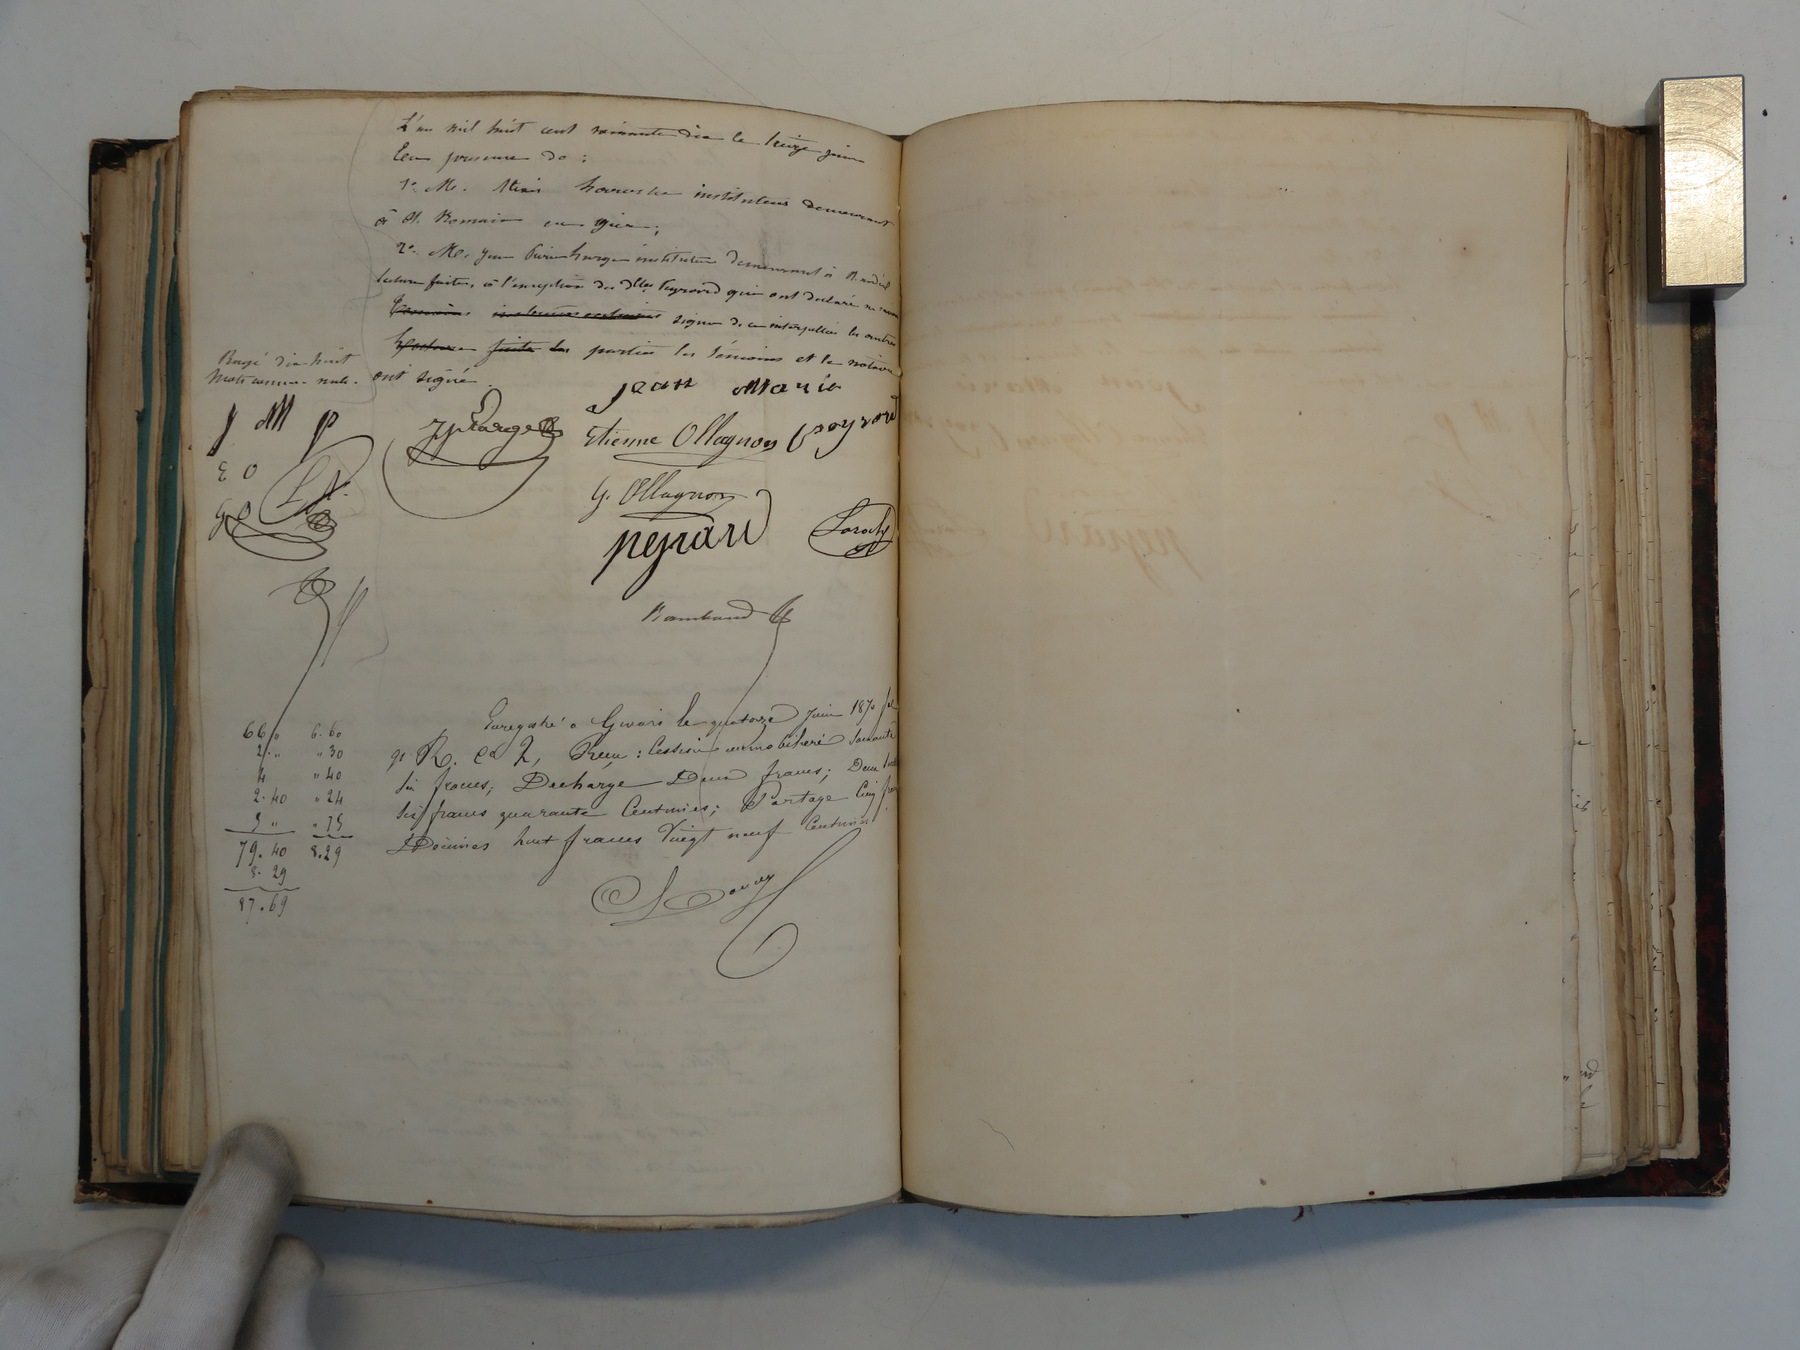 L'an mil huit cent soixante dix le treize juin
En presence de :
1o. M. Alexis Laroche instituteur demeurant
à St. Romain en gier ;
2o. M. Jean Pierre Large instituteur demeurant à
lecture faite, à l'exception des dlles Peyrard qui ont déclaré ne savoir
signer de ce interpellées les autres
lecture faite les parties les témoins et le notaire
ont signé.
Rayé dix huit
mots comme nuls.
J M P
E O
G O
L A
JP Large
jean Marie
Etienne Ollagnon peyrard
G. Ollagnon
peyrard
Laroche
Rambaud
Enregistré à Givors le quatorze Juin 1870 fol
R. Ca 2, Reçu : Cession immobilière Soixante
Six francs ; Décharge Deux francs ;
francs quarante Centimes ; Partage Cinq francs
Décimes huit francs Vingt neuf Centimes
66 " 6. 60
2 " " 30
4 " 40
2. 40 " 24
5 " " 75
79. 40 8. 29
8. 29
87. 69